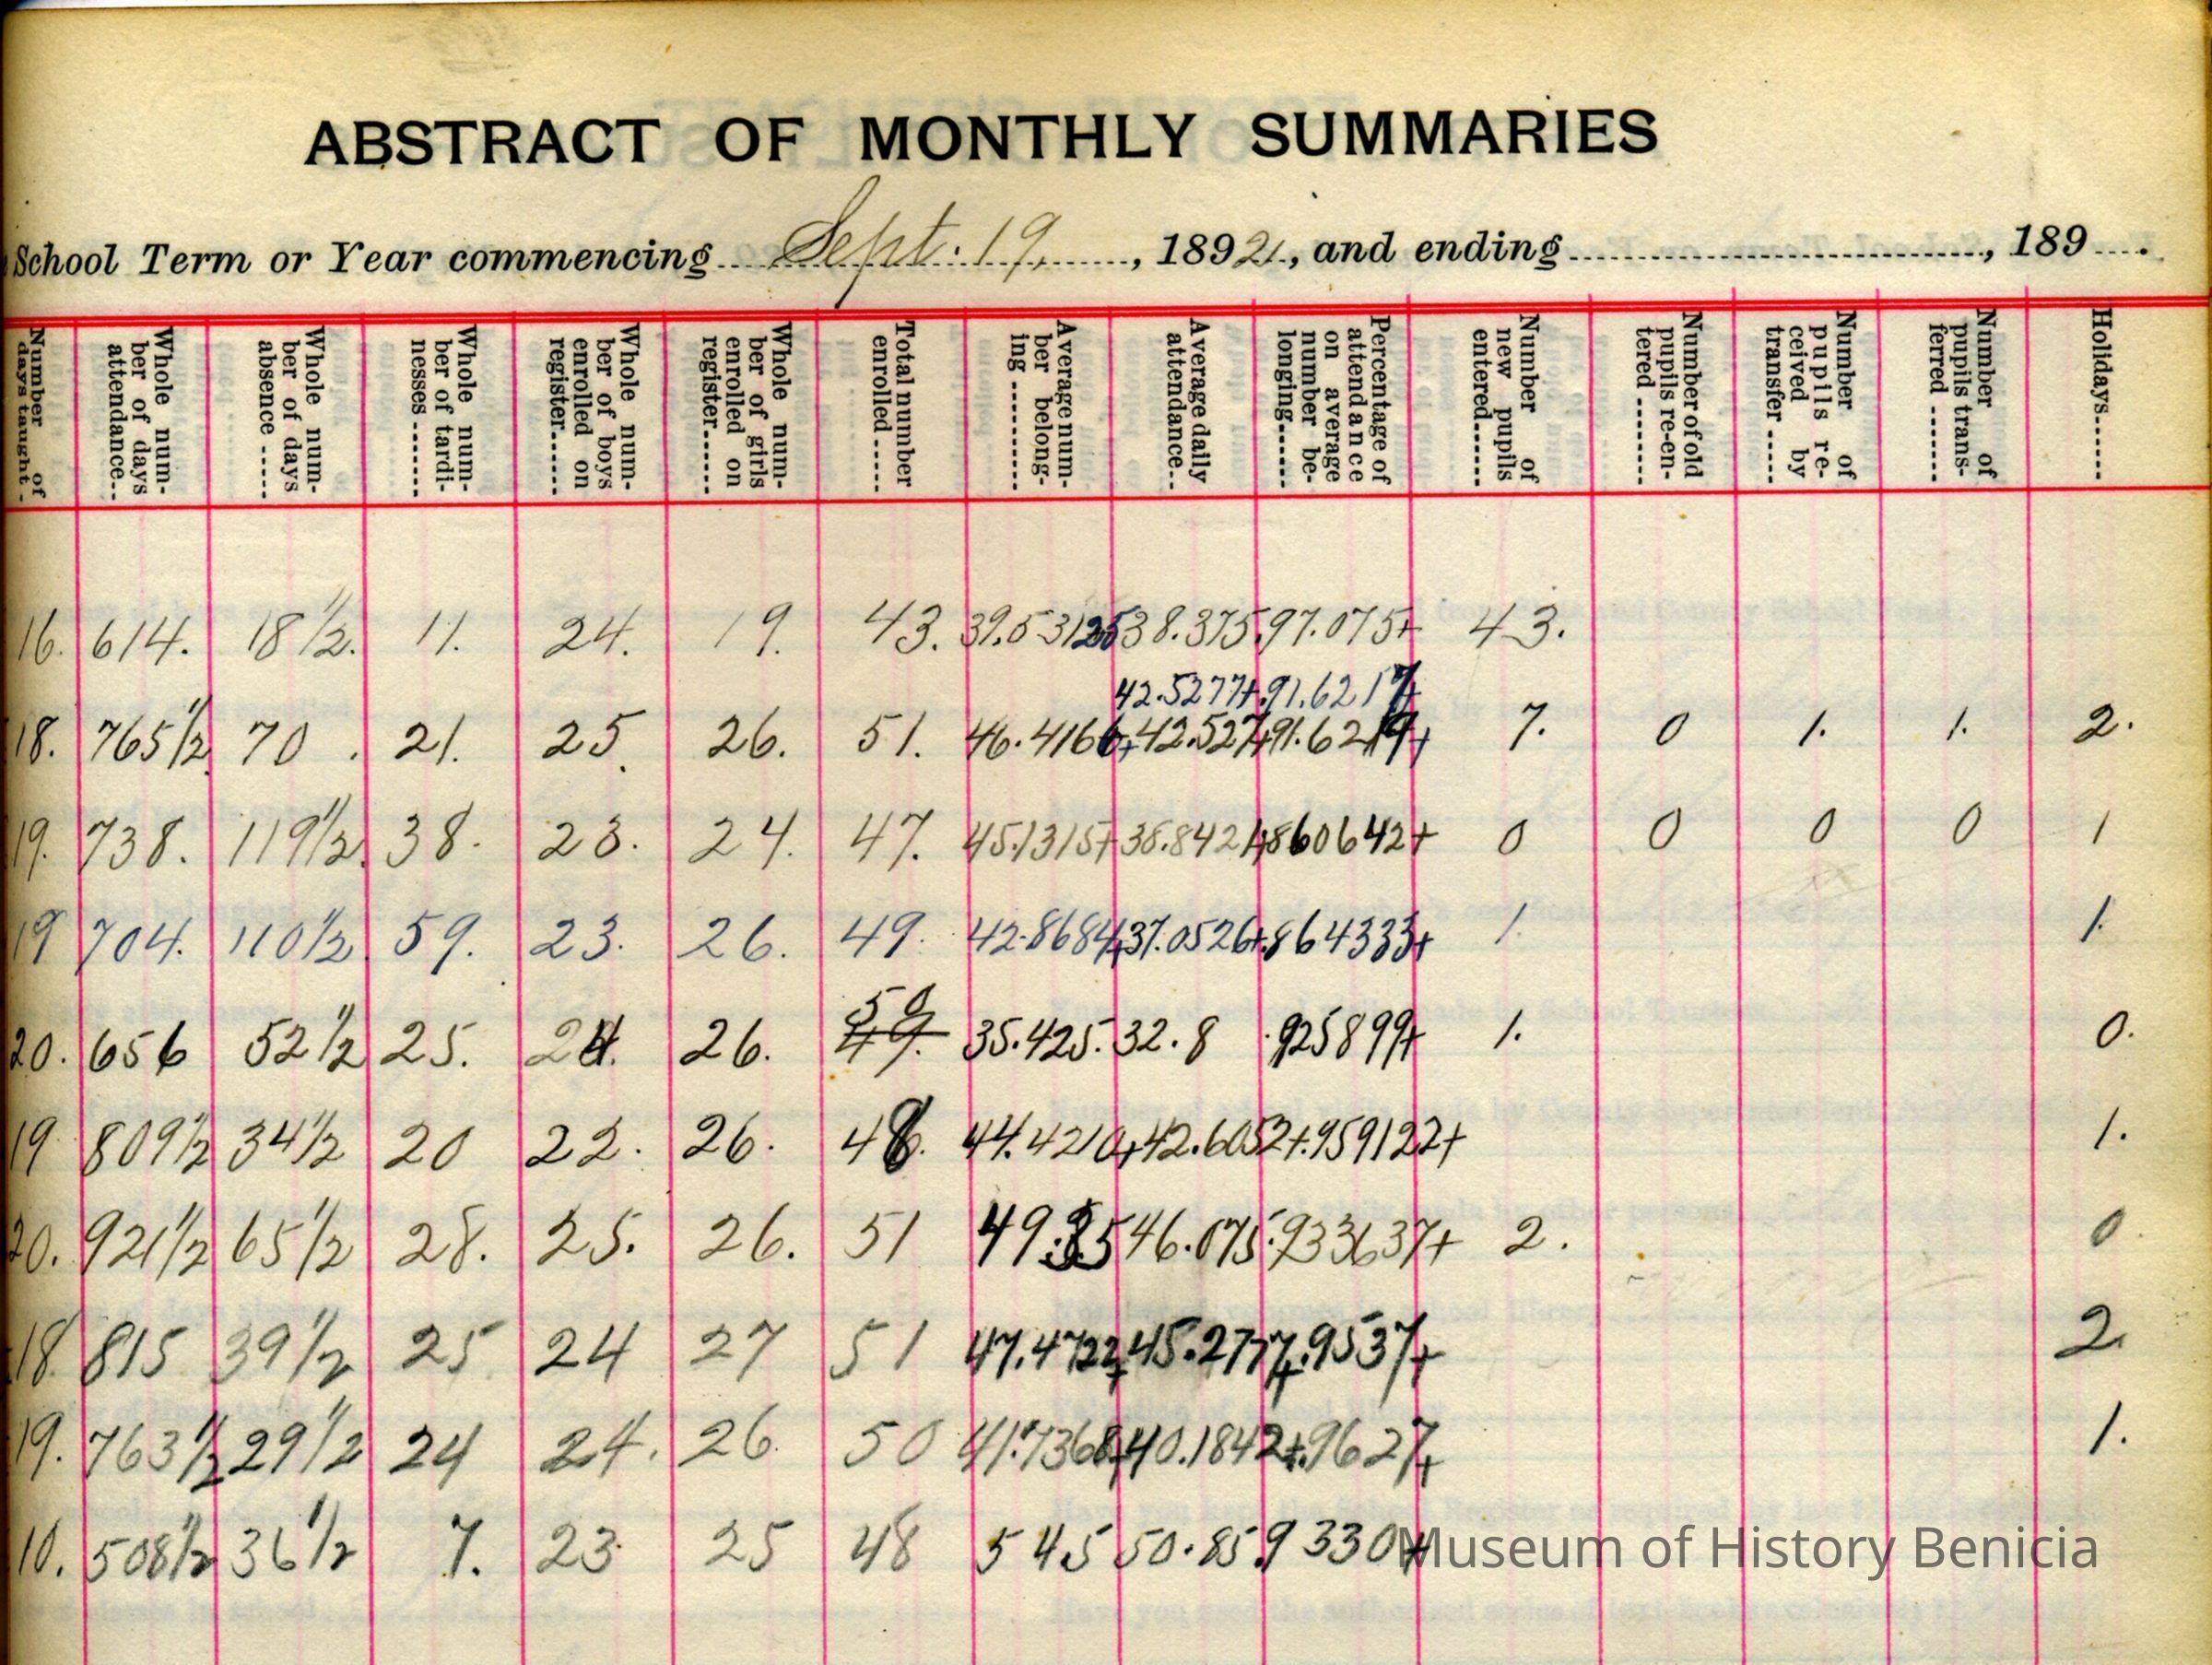 ABSTRACT OF MONTHLY SUMMARIES
School Term or Year commencing Sept. 19, , 1892, and ending , 189 .
Number of days taught
Whole number of days attendance
Whole number of days absence
Whole number of tardinesses
Whole number of boys enrolled on register
Whole number of girls enrolled on register
Total number enrolled
Average number belonging
Average daily attendance
Percentage of attendance on average number belonging
Number of new pupils entered
Number of old pupils re-entered
Number of pupils received by transfer
Number of pupils transferred
Holidays
16. 614. 18 1/2. 11. 24. 19. 43. 39.53125 38.375 .97.075+ 43.
42.5277+ .91.6217+
18. 765 1/2 70 . 21. 25. 26. 51. 46.4166+ 42.527+ 91.6219+ 7. 0 1. 1. 2.
19. 738. 119 1/2. 38. 23. 24. 47. 45.1315+ 38.8421+ 860642+ 0 0 0 0 1
19 704. 110 1/2. 59. 23. 26. 49. 42.8684+ 37.0526+ .864333+ 1. 1.
50
20. 656 52 1/2 25. 24. 26. 49. 35.425. 32.8 .925899+ 1. 0.
19 809 1/2 34 1/2 20 22. 26. 48. 44.4210+ 42.6052+ .959122+ 1.
20. 921 1/2 65 1/2 28. 25. 26. 51 49.35 46.075 .933637+ 2. 0
18. 815 39 1/2 25 24 27 51 47.4722+ 45.2777+ .9537+ 2.
19. 763 1/2 29 1/2 24 24. 26. 50 41.7368+ 40.1842+ .9627+ 1.
10. 508 1/2 36 1/2 7. 23. 25 48 545 50.85 .9330+
Museum of History Benicia